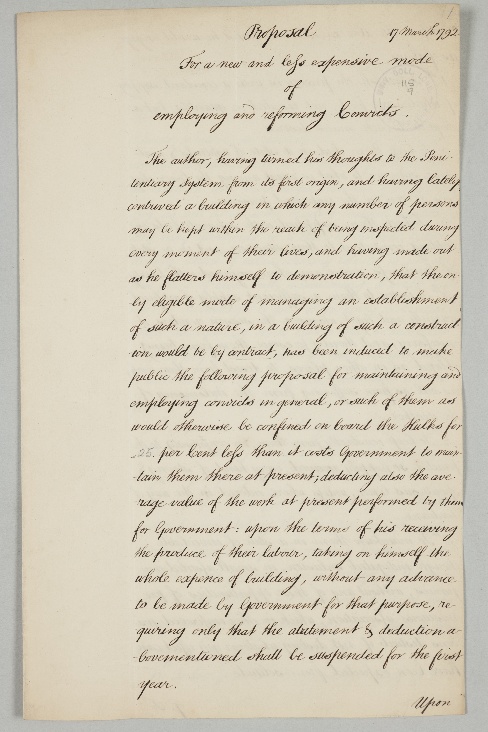 Proposal 17 March 1792
For a new and less expensive mode
of
employing and reforming Convicts.
The author, having turned his thoughts to the Peni-
tentiary System from its first origin, and having lately
contrived a building in which any number of persons
may be kept within the reach of being inspected during
every moment of their lives, and having made out
as he flatters himself to demonstration, that the on-
ly eligible mode of managing an establishment
of such a nature, in a building of such a construct
ion would be by contract, has been induced to make
public the following proposal for maintaining and
employing convicts in general, or such of them as
would otherwise be confined on board the Hulks for
25. per Cent less than it costs Government to main-
tain them there at present; deducting also the ave-
rage value of the work at present performed by them
for Government: upon the terms of his receiving
the produce of their labour, taking on himself the
whole expence of building, without any advance
to be made by Government for that purpose, re-
quiring only that the abatement & deduction a-
bovementioned shall be suspended for the first
year.
Upon